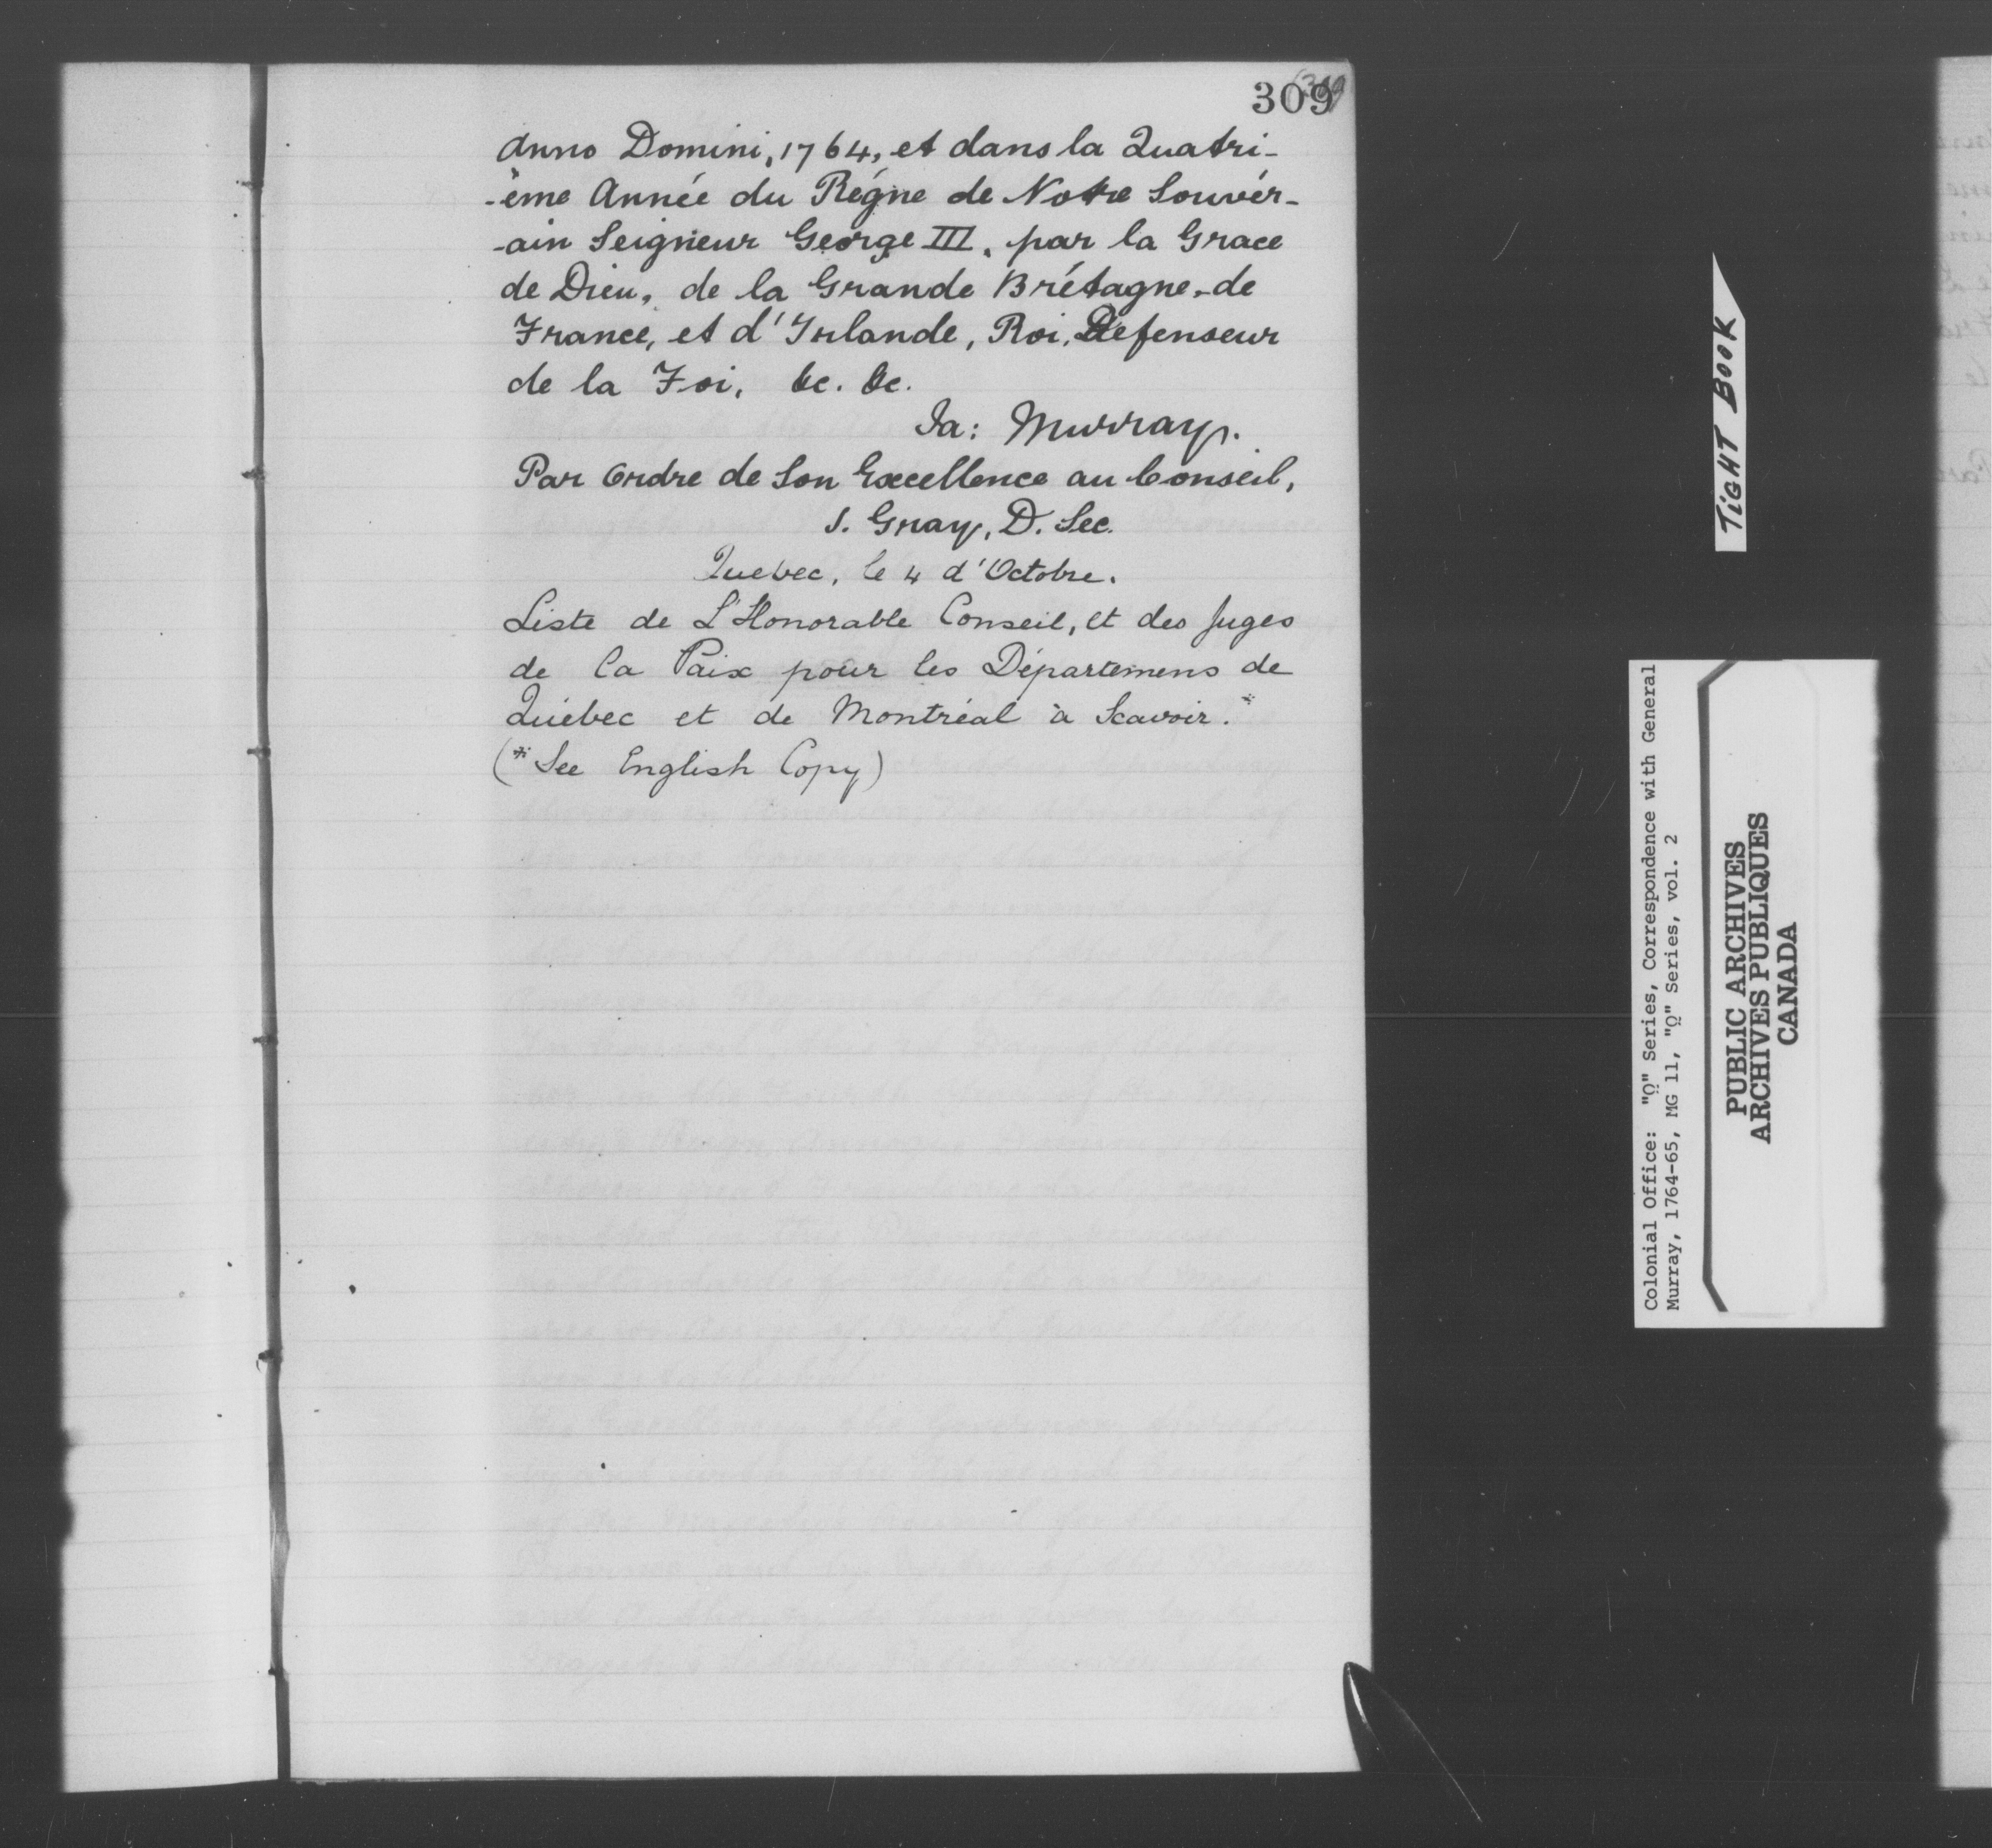 309
Anno Domini, 1764, et dans la Quatri-
-ême Année du Régne de Notre Souvér-
-ain Seigneur George III, par la Grace
de Dieu, de la Grande Brétagne, de
France, et d'Irlande, Roi, Defenseur
de la Foi, &c. &c.
Ja: Murray.
Par Ordre de Son Excellence au Conseil,
J. Gray, D. Sec.
Quebec, le 4 d'Octobre.
Liste de L'Honorable Conseil, et des Juges
de la Paix pour les Départemens de
Québec et de Montréal à Scavoir.*
(* See English Copy)
TIGHT BOOK
Colonial Office: "Q" Series, Correspondence with General
Murray, 1764-65, MG 11, "Q" Series, vol. 2
PUBLIC ARCHIVES
ARCHIVES PUBLIQUES
CANADA